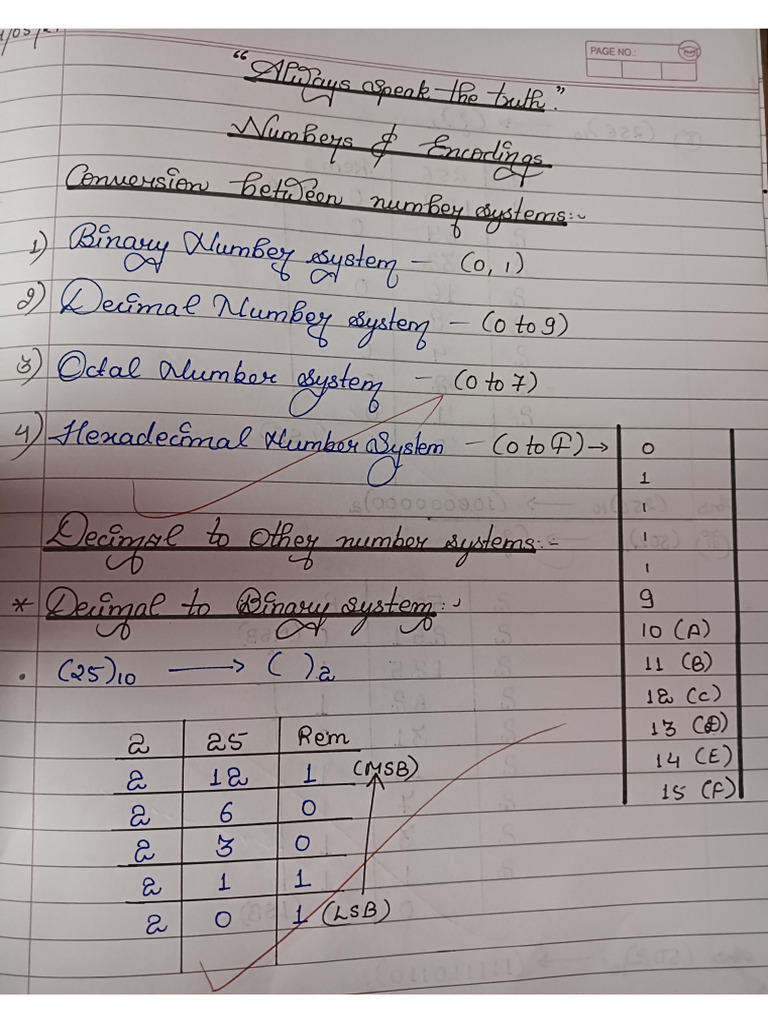 PAGE NO.:
"Always speak the truth."
Numbers & Encodings
Conversion between number systems:-
1) Binary Number system - (0, 1)
2) Decimal Number system - (0 to 9)
3) Octal Number system - (0 to 7)
4) Hexadecimal Number System - (0 to F) →
0
1
1
1
1
9
10 (A)
11 (B)
12 (C)
13 (D)
14 (E)
15 (F)
Decimal to Other number systems:-
* Decimal to Binary system:-
. (25)10 → ( )2
2 25 Rem
2 12 1 (MSB)
2 6 0
2 3 0
2 1 1
2 0 1 (LSB)